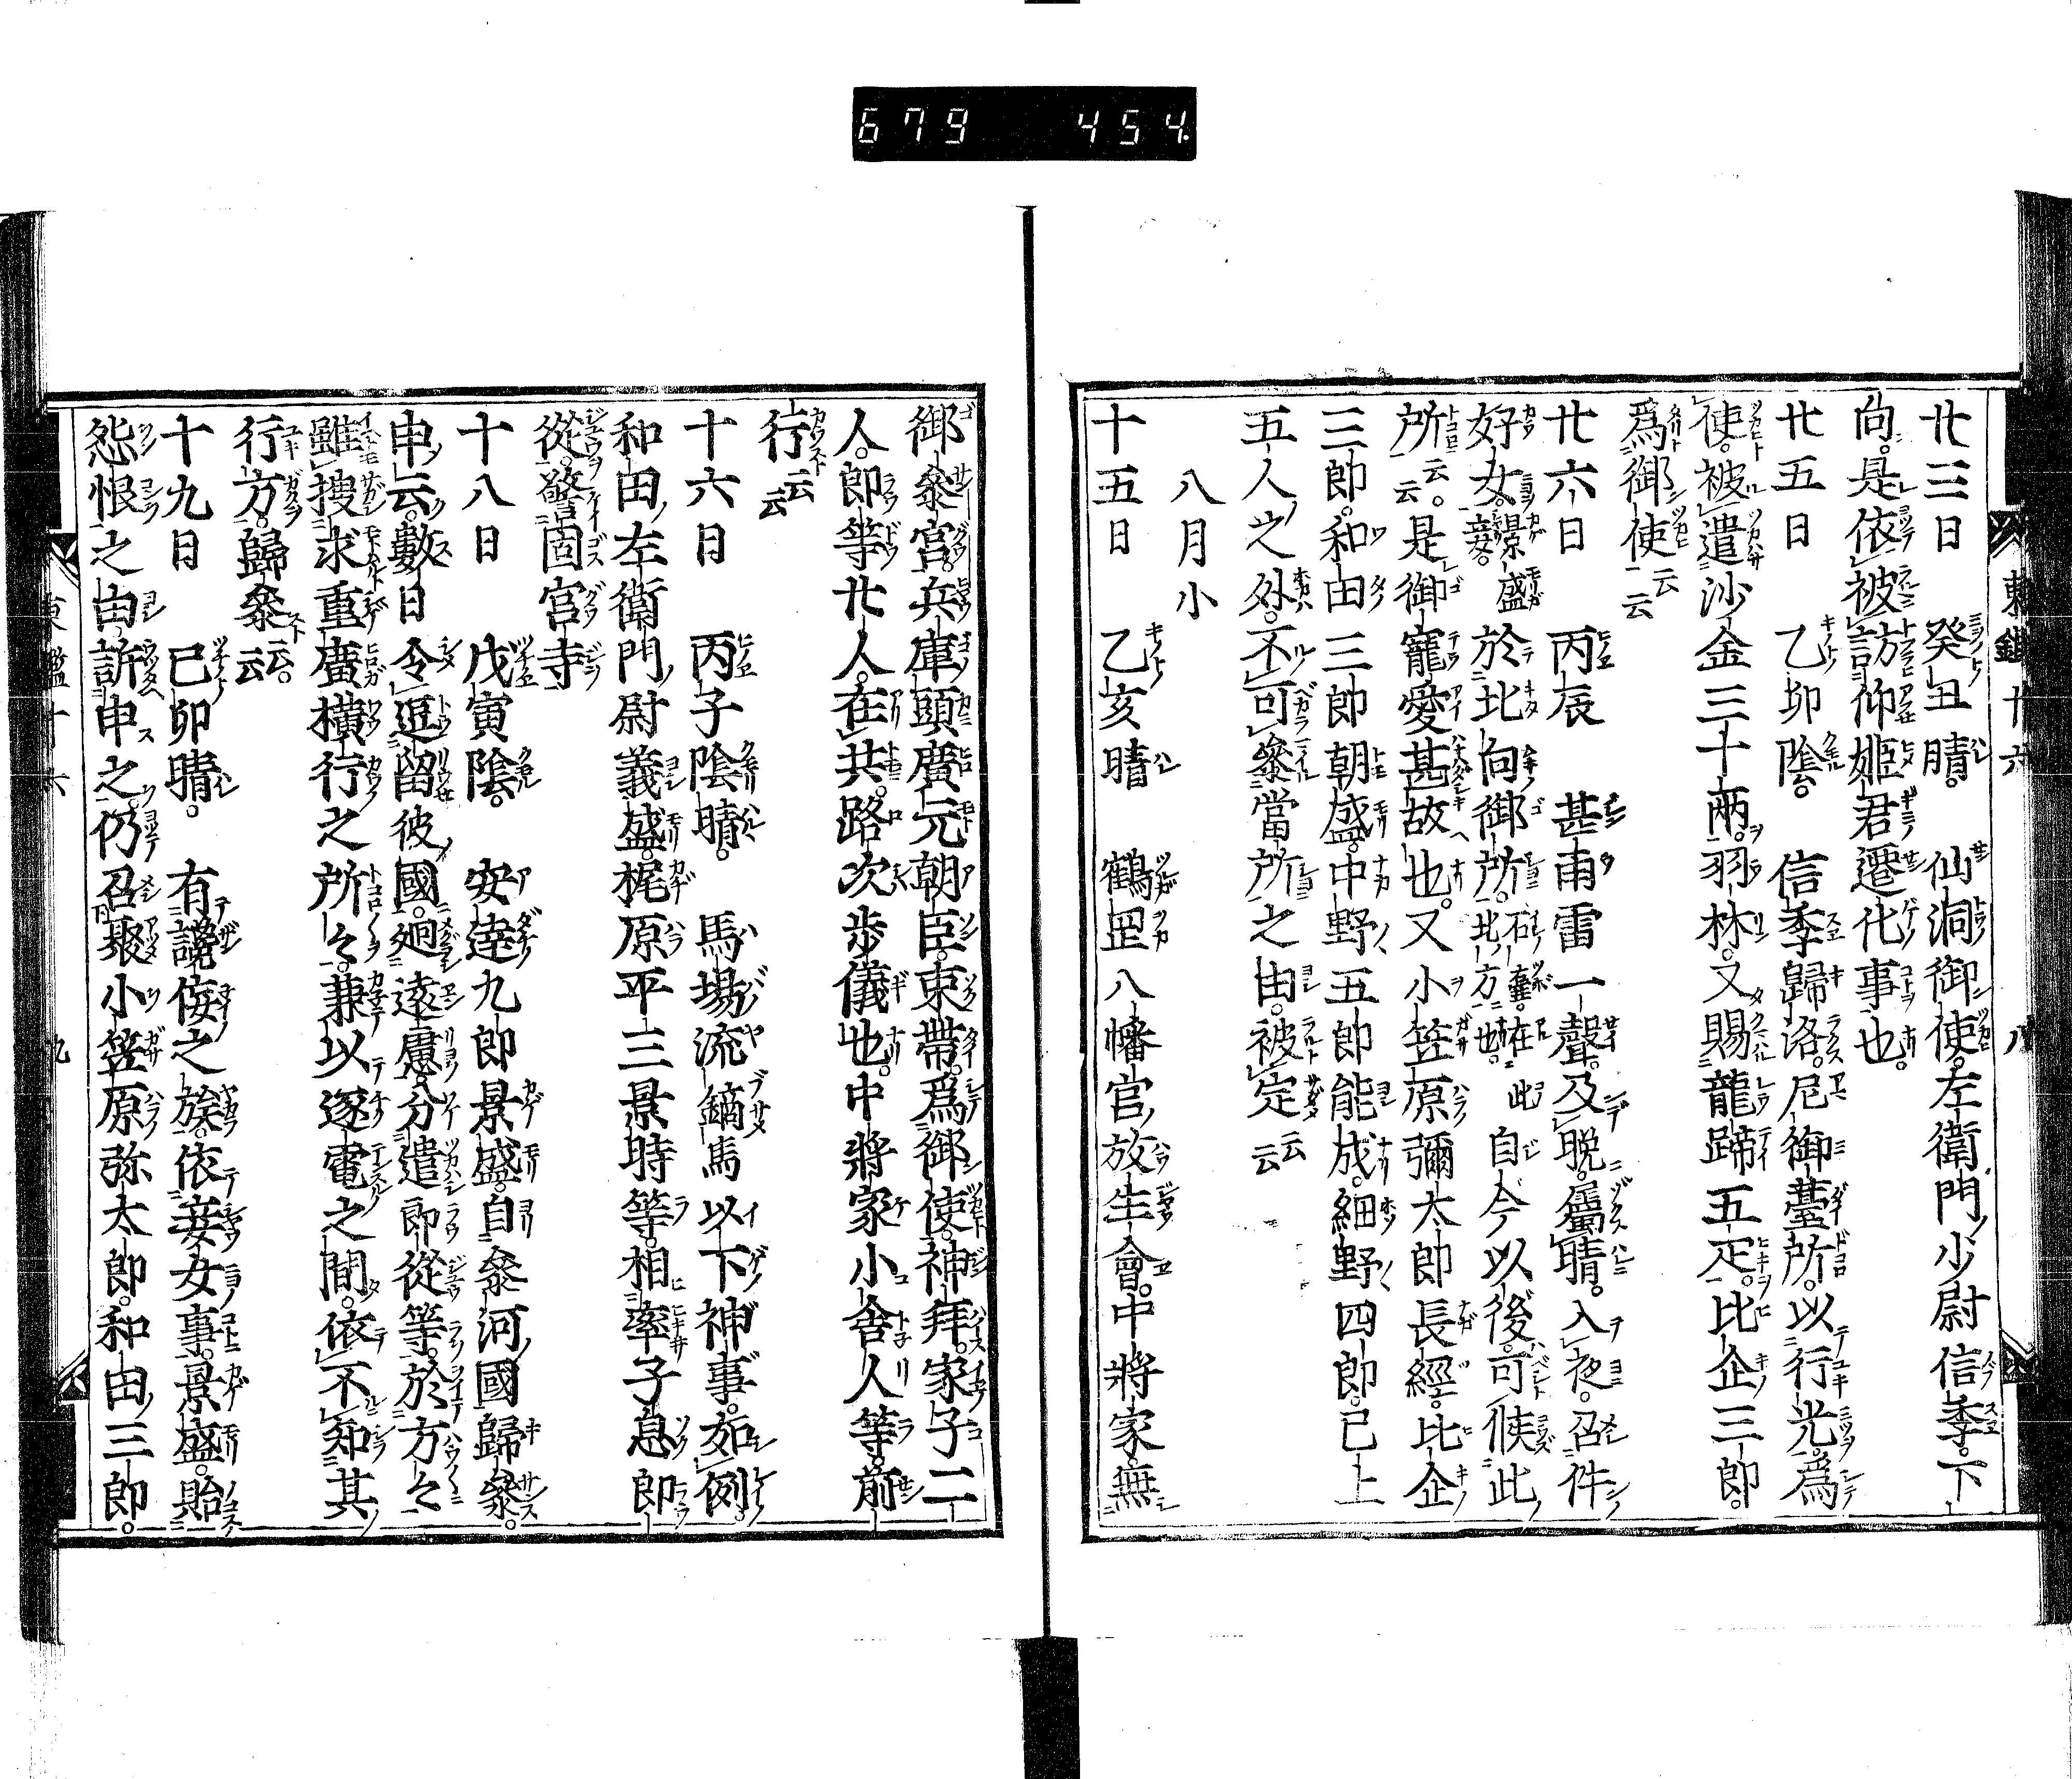 679 454
東鑑十六 八
廿三日 癸丑晴。 仙洞御使。左衛門少尉信季。下
向。是依被訪仰姫君遷化事也。
廿五日 乙卯陰。 信季歸洛。尼御臺所。以行光。爲
使。被遣沙金三十兩。羽林。又賜龍蹄五疋。比企三郎。
爲御使云云
廿六日 丙辰 甚雨雷一聲。及晩。屬晴。入夜。召件
好女。景盛妾。於北向御所。石壺。在此北方也。自今以後。可候此
所云云。是御寵愛甚故也。又小笠原彌太郎長經。比企
三郎。和田三郎朝盛。中野五郎能成。細野四郎。已上
五人之外。不可參當所之由。被定云云
八月小
十五日 乙亥晴 鶴罡八幡宮放生會。中將家。無
御參宮。兵庫頭廣元朝臣。束帶。爲御使。神拜。家子二
人。郎等廿人。在共。路次歩儀也。中將家小舎人等。前
行云云
十六日 丙子陰晴。 馬場流鏑馬以下神事。如例。
和田左衛門尉義盛。梶原平三景時等。相率子息郎
從。警固宮寺
十八日 戊寅陰。 安達九郎景盛。自參河國歸參。
申云。數日令逗留彼國。廻遠慮。分遣郎從等。於方々
雖搜求重廣横行之所々。兼以逐電之間。依不知其
行方。歸參云云。
十九日 己卯晴。 有讒侫之族。依妾女事。景盛。貽
怨恨之由。訴申之。仍召聚小笠原弥太郎。和田三郎。
東鑑十六 九